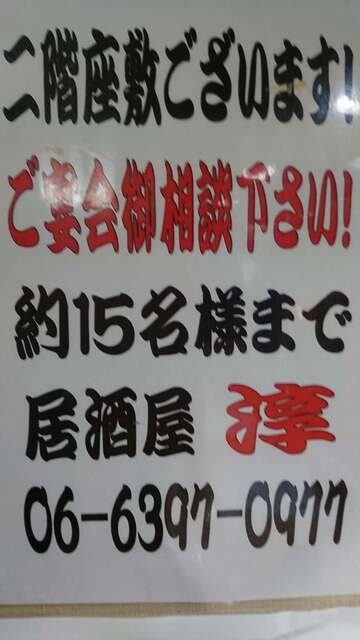 二階座敷ございます!
ご宴会御相談下さい!
約15名様まで
居酒屋 淳
06-6397-0977